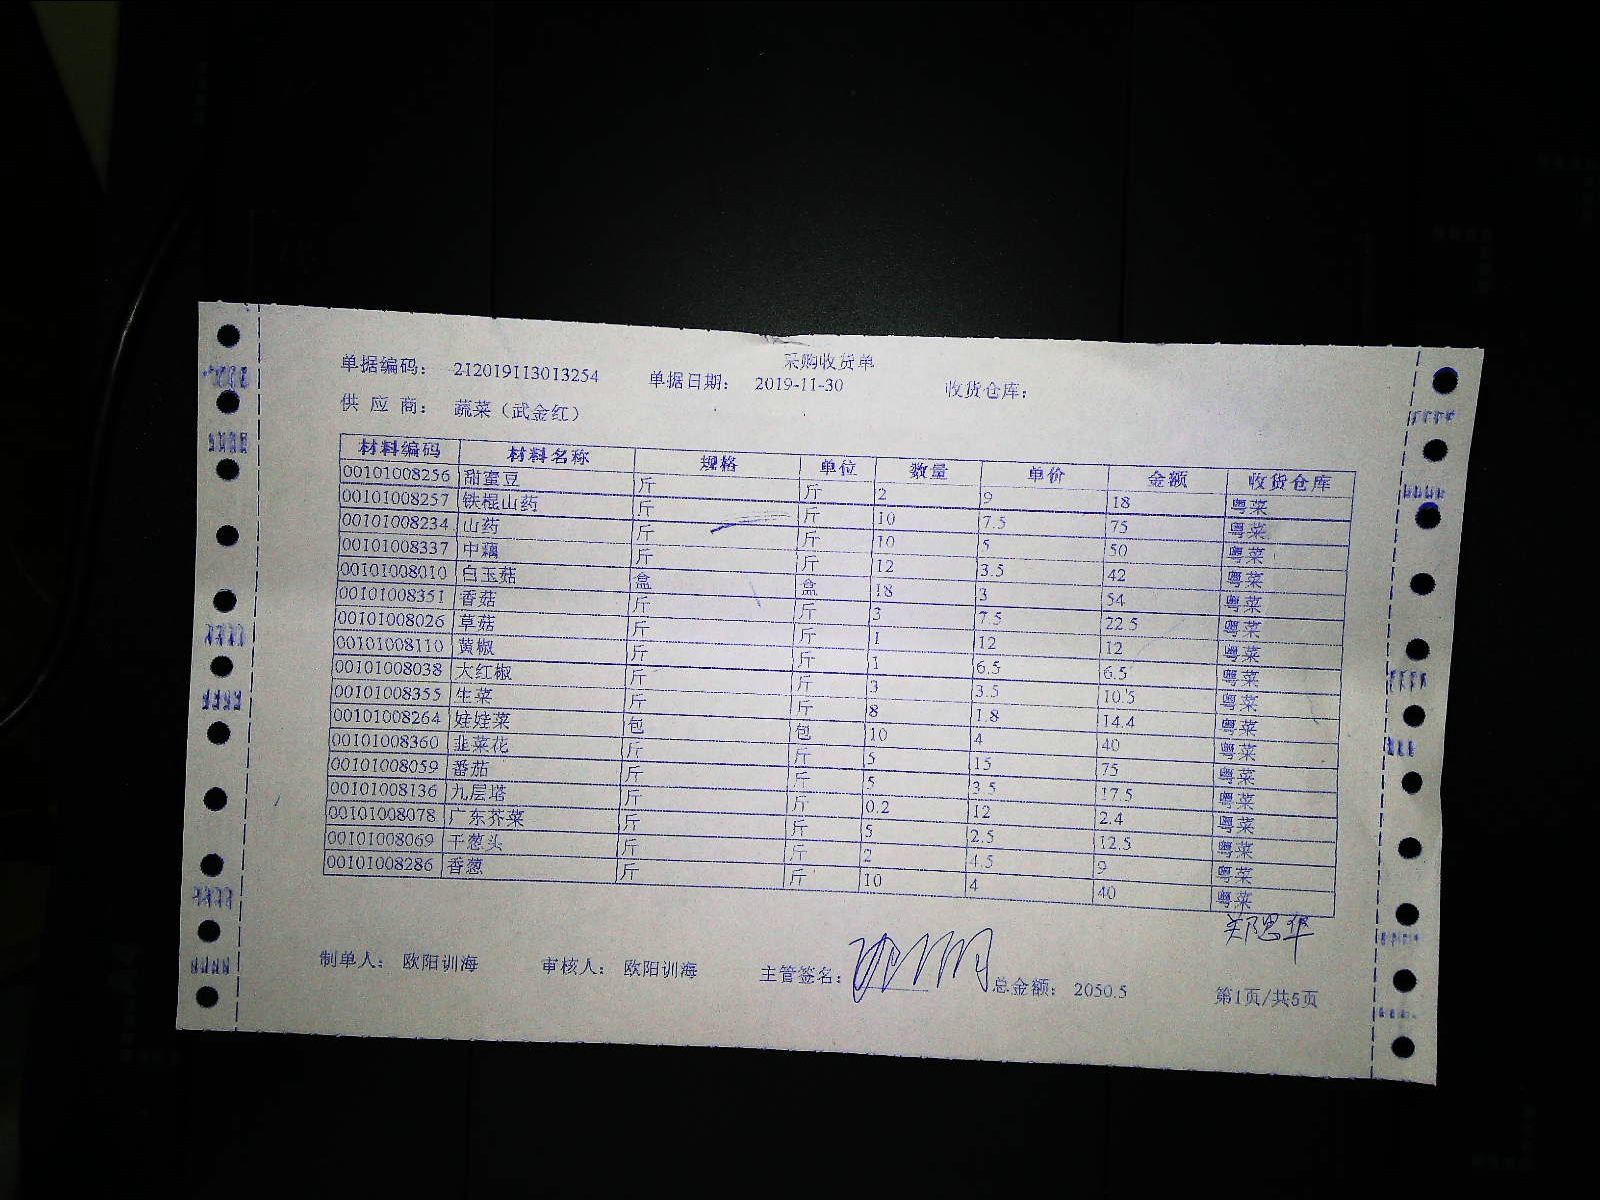 采购收货单
单据编码： 212019113013254 单据日期： 2019-11-30 收货仓库：
供 应 商： 蔬菜（武金红）
材料编码 材料名称 规格 单位 数量 单价 金额 收货仓库
00101008256 甜蜜豆 斤 斤 2 9 18 粤菜
00101008257 铁棍山药 斤 斤 10 7.5 75 粤菜
00101008234 山药 斤 斤 10 5 50 粤菜
00101008337 中藕 斤 斤 12 3.5 42 粤菜
00101008010 白玉菇 盒 盒 18 3 54 粤菜
00101008351 香菇 斤 斤 3 7.5 22.5 粤菜
00101008026 草菇 斤 斤 1 12 12 粤菜
00101008110 黄椒 斤 斤 1 6.5 6.5 粤菜
00101008038 大红椒 斤 斤 3 3.5 10.5 粤菜
00101008355 生菜 斤 斤 8 1.8 14.4 粤菜
00101008264 娃娃菜 包 包 10 4 40 粤菜
00101008360 韭菜花 斤 斤 5 15 75 粤菜
00101008059 番茄 斤 斤 5 3.5 17.5 粤菜
00101008136 九层塔 斤 斤 0.2 12 2.4 粤菜
00101008078 广东芥菜 斤 斤 5 2.5 12.5 粤菜
00101008069 干葱头 斤 斤 2 4.5 9 粤菜
00101008286 香葱 斤 斤 10 4 40 粤菜
郑思华
制单人： 欧阳训海 审核人： 欧阳训海 主管签名： 总金额： 2050.5 第1页/共5页